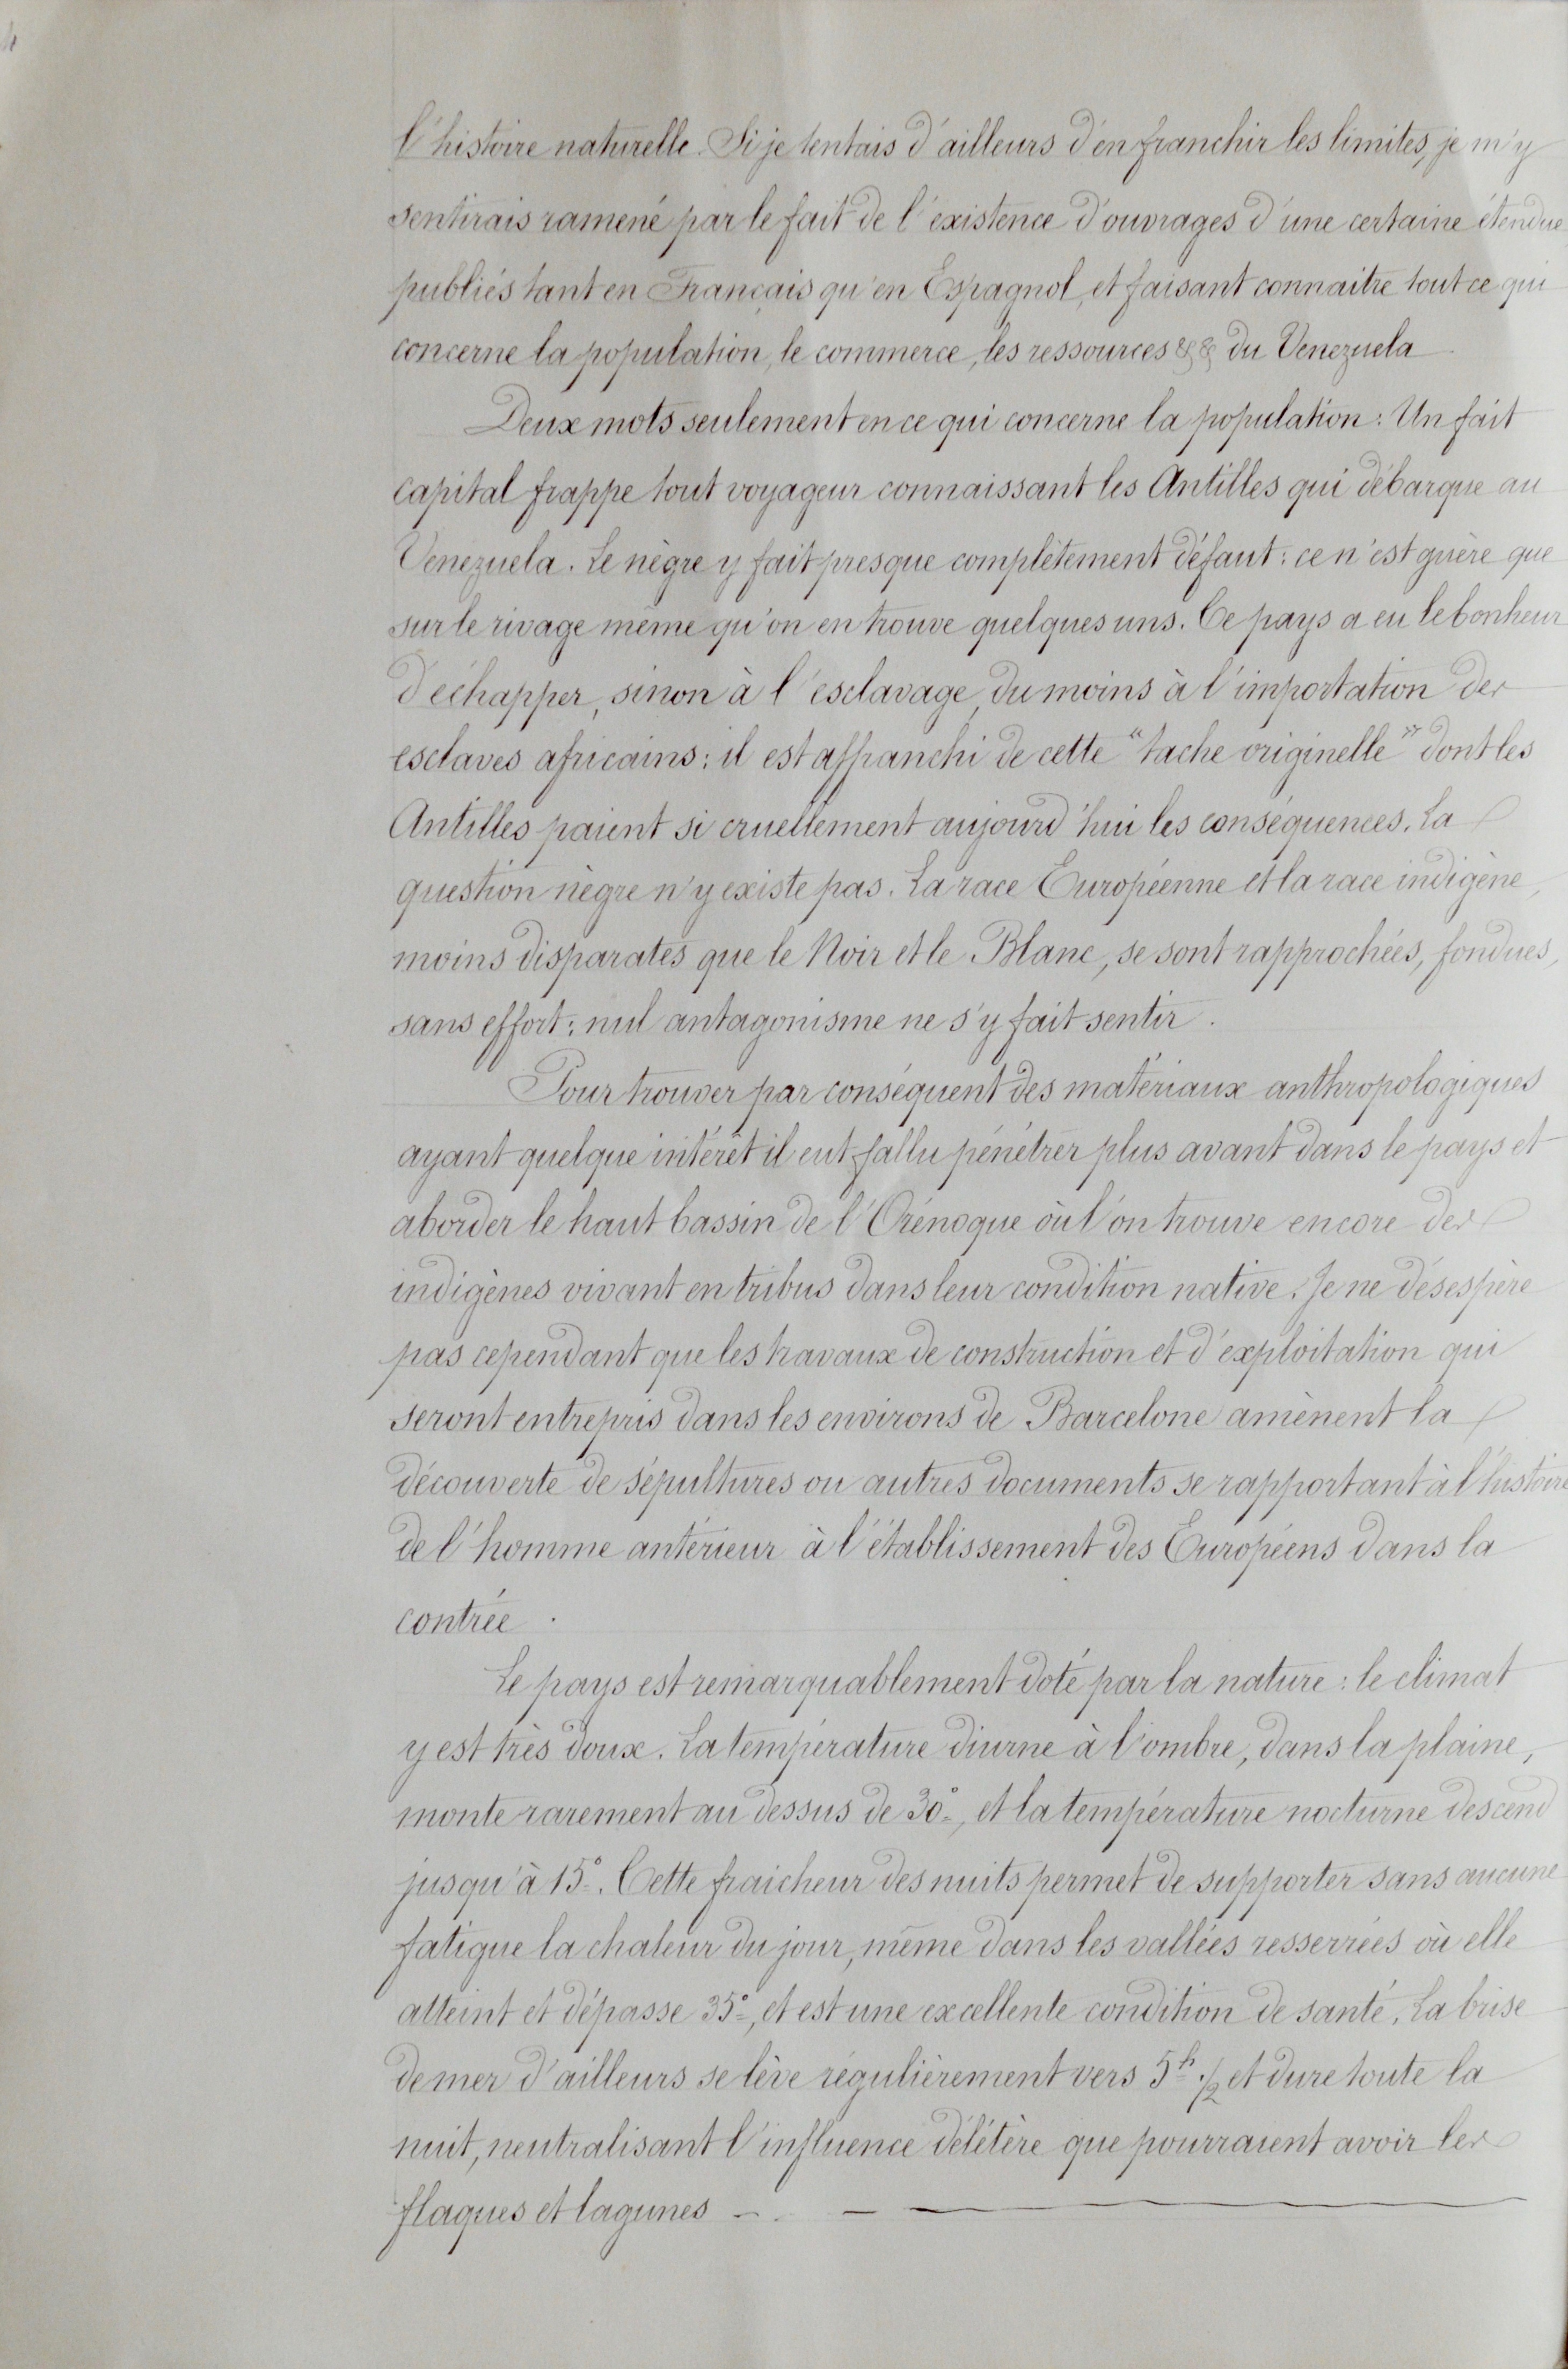 l'histoire naturelle. Si je tentais d'ailleurs d'en franchir les limites, je m'y
sentirais ramené par le fait de l'existence d'ouvrages d'une certaine étendue
publiés tant en Français qu'en Espagnol, et faisant connaitre tout ce qui
concerne la population, le commerce, les ressources && du Venezuela.
Deux mots seulement en ce qui concerne la population : Un fait
capital frappe tout voyageur connaissant les Antilles qui débarque au
Venezuela. Le nègre y fait presque complètement défaut : ce n'est guère que
sur le rivage même qu'on en trouve quelques uns. Ce pays a eu le bonheur
d'échapper, sinon à l'esclavage, du moins à l'importation des
esclaves africains : il est affranchi de cette "tache originelle" dont les
Antilles paient si cruellement aujourd'hui les conséquences. La
question nègre n'y existe pas. La race Européenne et la race indigène,
moins disparates que le Noir et le Blanc, se sont rapprochées, fondues,
sans effort ; nul antagonisme ne s'y fait sentir.
Pour trouver par conséquent des matériaux anthropologiques
ayant quelque intérêt il eut fallu pénétrer plus avant dans le pays et
aborder le haut bassin de l'Orénoque où l'on trouve encore des
indigènes vivant en tribus dans leur condition native. Je ne désespère
pas cependant que les travaux de construction et d'exploitation qui
seront entrepris dans les environs de Barcelone amènent la
découverte de sépultures ou autres documents se rapportant à l'histoire
de l'homme antérieur à l'établissement des Européens dans la
contrée.
Le pays est remarquablement doté par la nature : le climat
y est très doux. La température diurne à l'ombre, dans la plaine,
monte rarement au dessus de 30°, et la température nocturne descend
jusqu'à 15°. Cette fraicheur des nuits permet de supporter sans aucune
fatigue la chaleur du jour, même dans les vallées resserrées où elle
atteint et dépasse 35°, et est une excellente condition de santé. La brise
de mer d'ailleurs se lève régulièrement vers 5h 1/2 et dure toute la
nuit, neutralisant l'influence délétère que pourraient avoir les
flaques et lagunes -. —